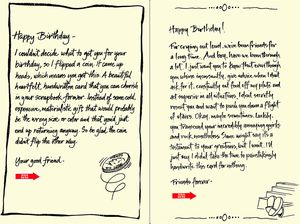 Happy Birthday -
I couldn't decide what to get you for your
birthday, so I flipped a coin. It came up
heads, which means you get this: A beautiful
heartfelt, handwritten card that you can cherish
in your scrapbook forever. Instead of some cold,
expensive, materialistic gift that would probably
be the wrong size or color and that you'd just
end up returning anyway. So be glad the coin
didn't flip the other way.
Your good friend -
Happy Birthday!
For crying out loud, we've been friends for
a long time. And boy, have we been through
a lot. I just want you to know that even though
you whine incessantly, give advice when I don't
ask for it, constantly eat food off my plate and
act superior in all situations, I don't secretly
resent you and want to push you down a flight
of stairs. Okay, maybe sometimes. Luckily,
you
your incredibly annoying quirks
and
nonetheless. Some might say it's a
testament to your greatness, but I won't. I'd
just say I didn't take the time to painstakingly
handwrite this card for nothing.
Friends forever -